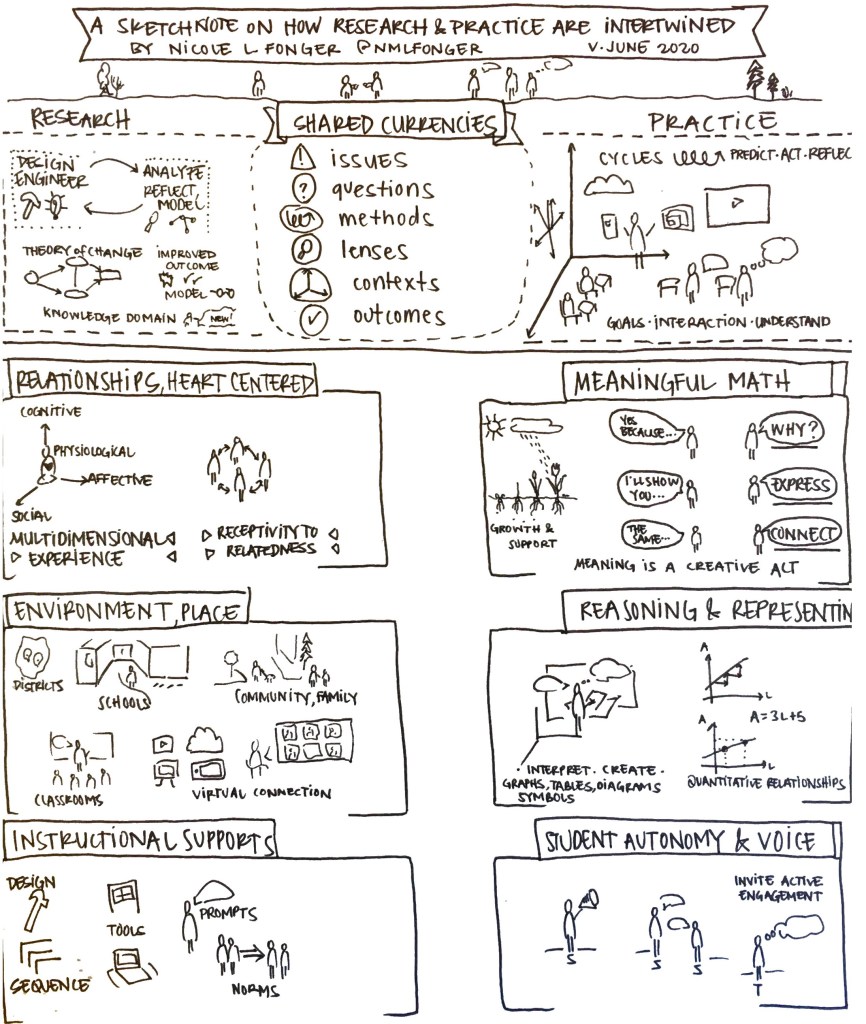 A SKETCHNOTE ON HOW RESEARCH & PRACTICE ARE INTERTWINED
BY NICOLE L FONGER @NMLFONGER V. JUNE 2020
RESEARCH
DESIGN
ENGINEER
ANALYZE
REFLECT
MODEL
THEORY of CHANGE
IMPROVED
OUTCOME
MODEL
KNOWLEDGE DOMAIN
NEW!
SHARED CURRENCIES
issues
questions
methods
lenses
contexts
outcomes
PRACTICE
CYCLES PREDICT · ACT · REFLEC
GOALS · INTERACTION · UNDERSTAND
RELATIONSHIPS, HEART CENTERED
COGNITIVE
PHYSIOLOGICAL
AFFECTIVE
SOCIAL
MULTIDIMENSIONAL
EXPERIENCE
RECEPTIVITY TO
RELATEDNESS
MEANINGFUL MATH
GROWTH &
SUPPORT
YES
BECAUSE...
WHY?
I'LL SHOW
YOU...
EXPRESS
THE
SAME...
CONNECT
MEANING IS A CREATIVE ACT
ENVIRONMENT, PLACE
DISTRICTS
SCHOOLS
COMMUNITY, FAMILY
CLASSROOMS
VIRTUAL CONNECTION
REASONING & REPRESENTIN
· INTERPRET · CREATE ·
GRAPHS, TABLES, DIAGRAMS
SYMBOLS
A
L
A = 3L+5
A
L
QUANTITATIVE RELATIONSHIPS
INSTRUCTIONAL SUPPORTS
DESIGN
SEQUENCE
TOOLS
PROMPTS
NORMS
STUDENT AUTONOMY & VOICE
INVITE ACTIVE
ENGAGEMENT
S
S
S
T